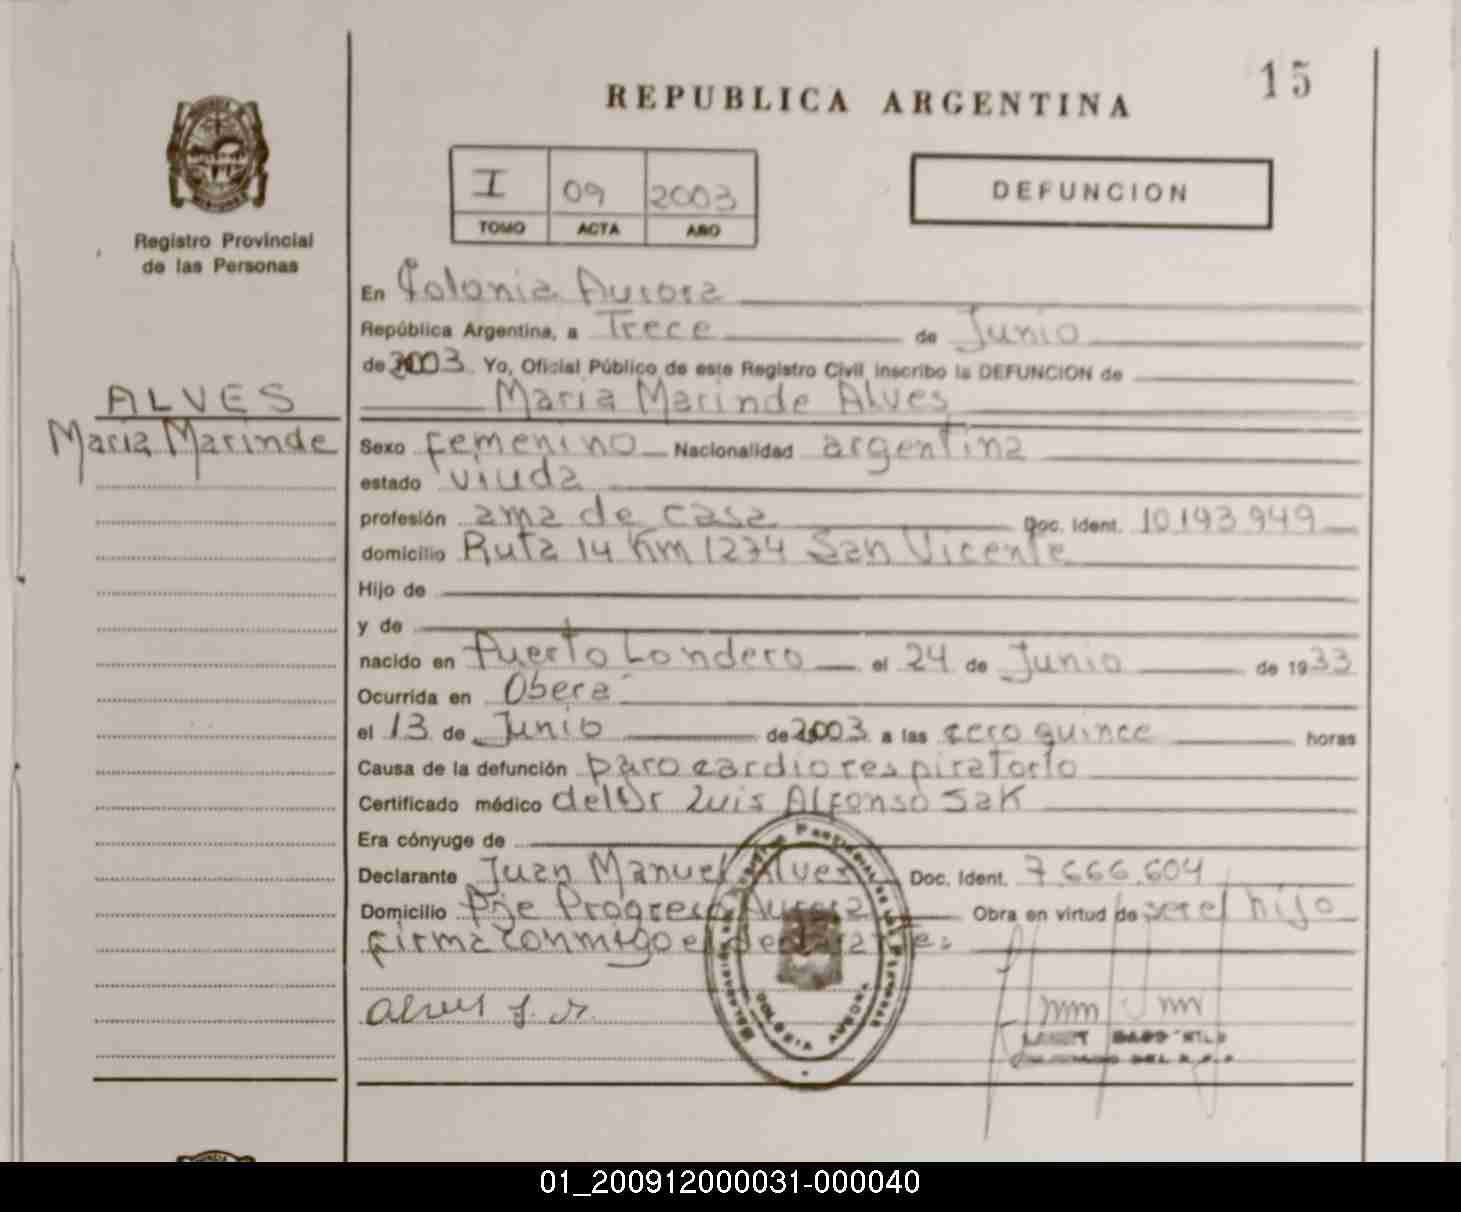 15
REPUBLICA ARGENTINA
I 09 2003
TOMO ACTA AÑO
DEFUNCION
Registro Provincial
de las Personas
ALVES
Maria Marinde
En Colonia Aurora
República Argentina, a Trece de Junio
de 2003 Yo, Oficial Público de este Registro Civil inscribo la DEFUNCION de
Maria Marinde Alves
Sexo femenino Nacionalidad argentina
estado viuda
profesión ama de casa Doc. Ident. 10193949
domicilio Ruta 14 Km 1274 San Vicente
Hijo de
y de
nacido en Puerto Londero el 24 de Junio de 1933
Ocurrida en Oberá
el 13 de Junio de 2003 a las cero quince horas
Causa de la defunción paro cardiorespiratorio
Certificado médico del Dr Luis Alfonso Sak
Era cónyuge de
Declarante Juan Manuel Alves Doc. Ident. 7.666.604
Domicilio Pje Progreso Aurora Obra en virtud de ser el hijo
firma conmigo el declarante.
Alves J.
COLONIA AURORA
01_200912000031-000040